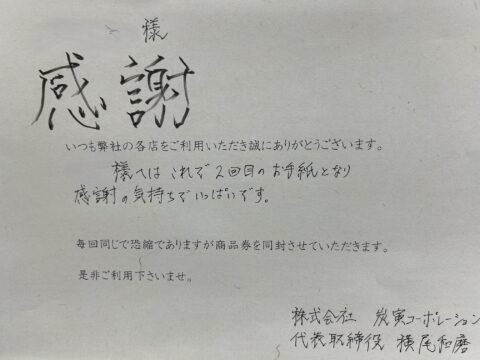 様
感謝
いつも弊社の各店をご利用いただき誠にありがとうございます。
様へは これで2回目のお手紙となり
感謝の気持ちでいっぱいです。
毎回同じで恐縮でありますが商品券を同封させていただきます。
是非ご利用下さいませ。
株式会社 炭寅コーポレーション
代表取締役 横尾和磨